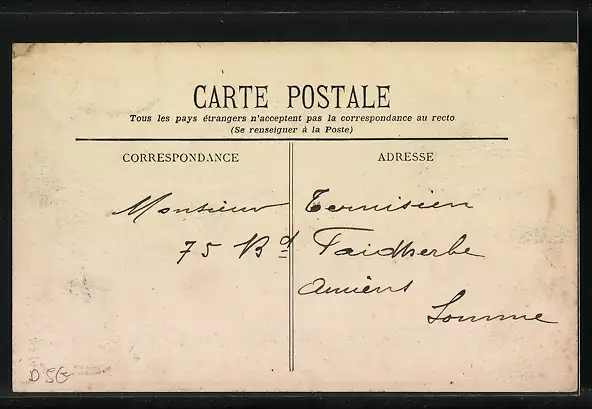 CARTE POSTALE
Tous les pays étrangers n'acceptent pas la correspondance au recto
(Se renseigner à la Poste)
CORRESPONDANCE ADRESSE
Monsieur Ternisien
75 Bd Faidherbe
Amiens
Somme
DSG